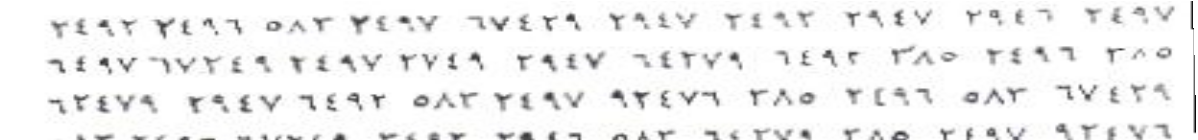 ٢٤٩٢ ٢٤٩٦ ٥٨٢ ٢٤٩٧ ٦٧٤٢٩ ٢٩٤٧ ٢٤٩٢ ٢٩٤٧ ٢٩٤٦ ٢٤٩٧
٦٤٩٧ ٦٧٢٤٩ ٢٤٩٧ ٢٧٤٩ ٢٩٤٧ ٦٤٢٧٩ ٦٤٩٢ ٢٨٥ ٢٤٩٦ ٢٨٥
٦٢٤٧٩ ٢٩٤٧ ٦٤٩٢ ٥٨٢ ٢٤٩٧ ٩٢٤٧٦ ٢٨٥ ٢٤٩٦ ٥٨٢ ٦٧٤٢٩
٥٨٢ ٦٤٢٧٩ ٢٨٥ ٢٤٩٧ ٩٢٤٧٦